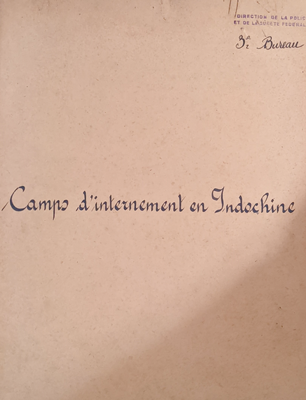 DIRECTION DE LA POLICE
ET DE LA SURETE FEDERAL
3e Bureau
Camps d'internement en Indochine